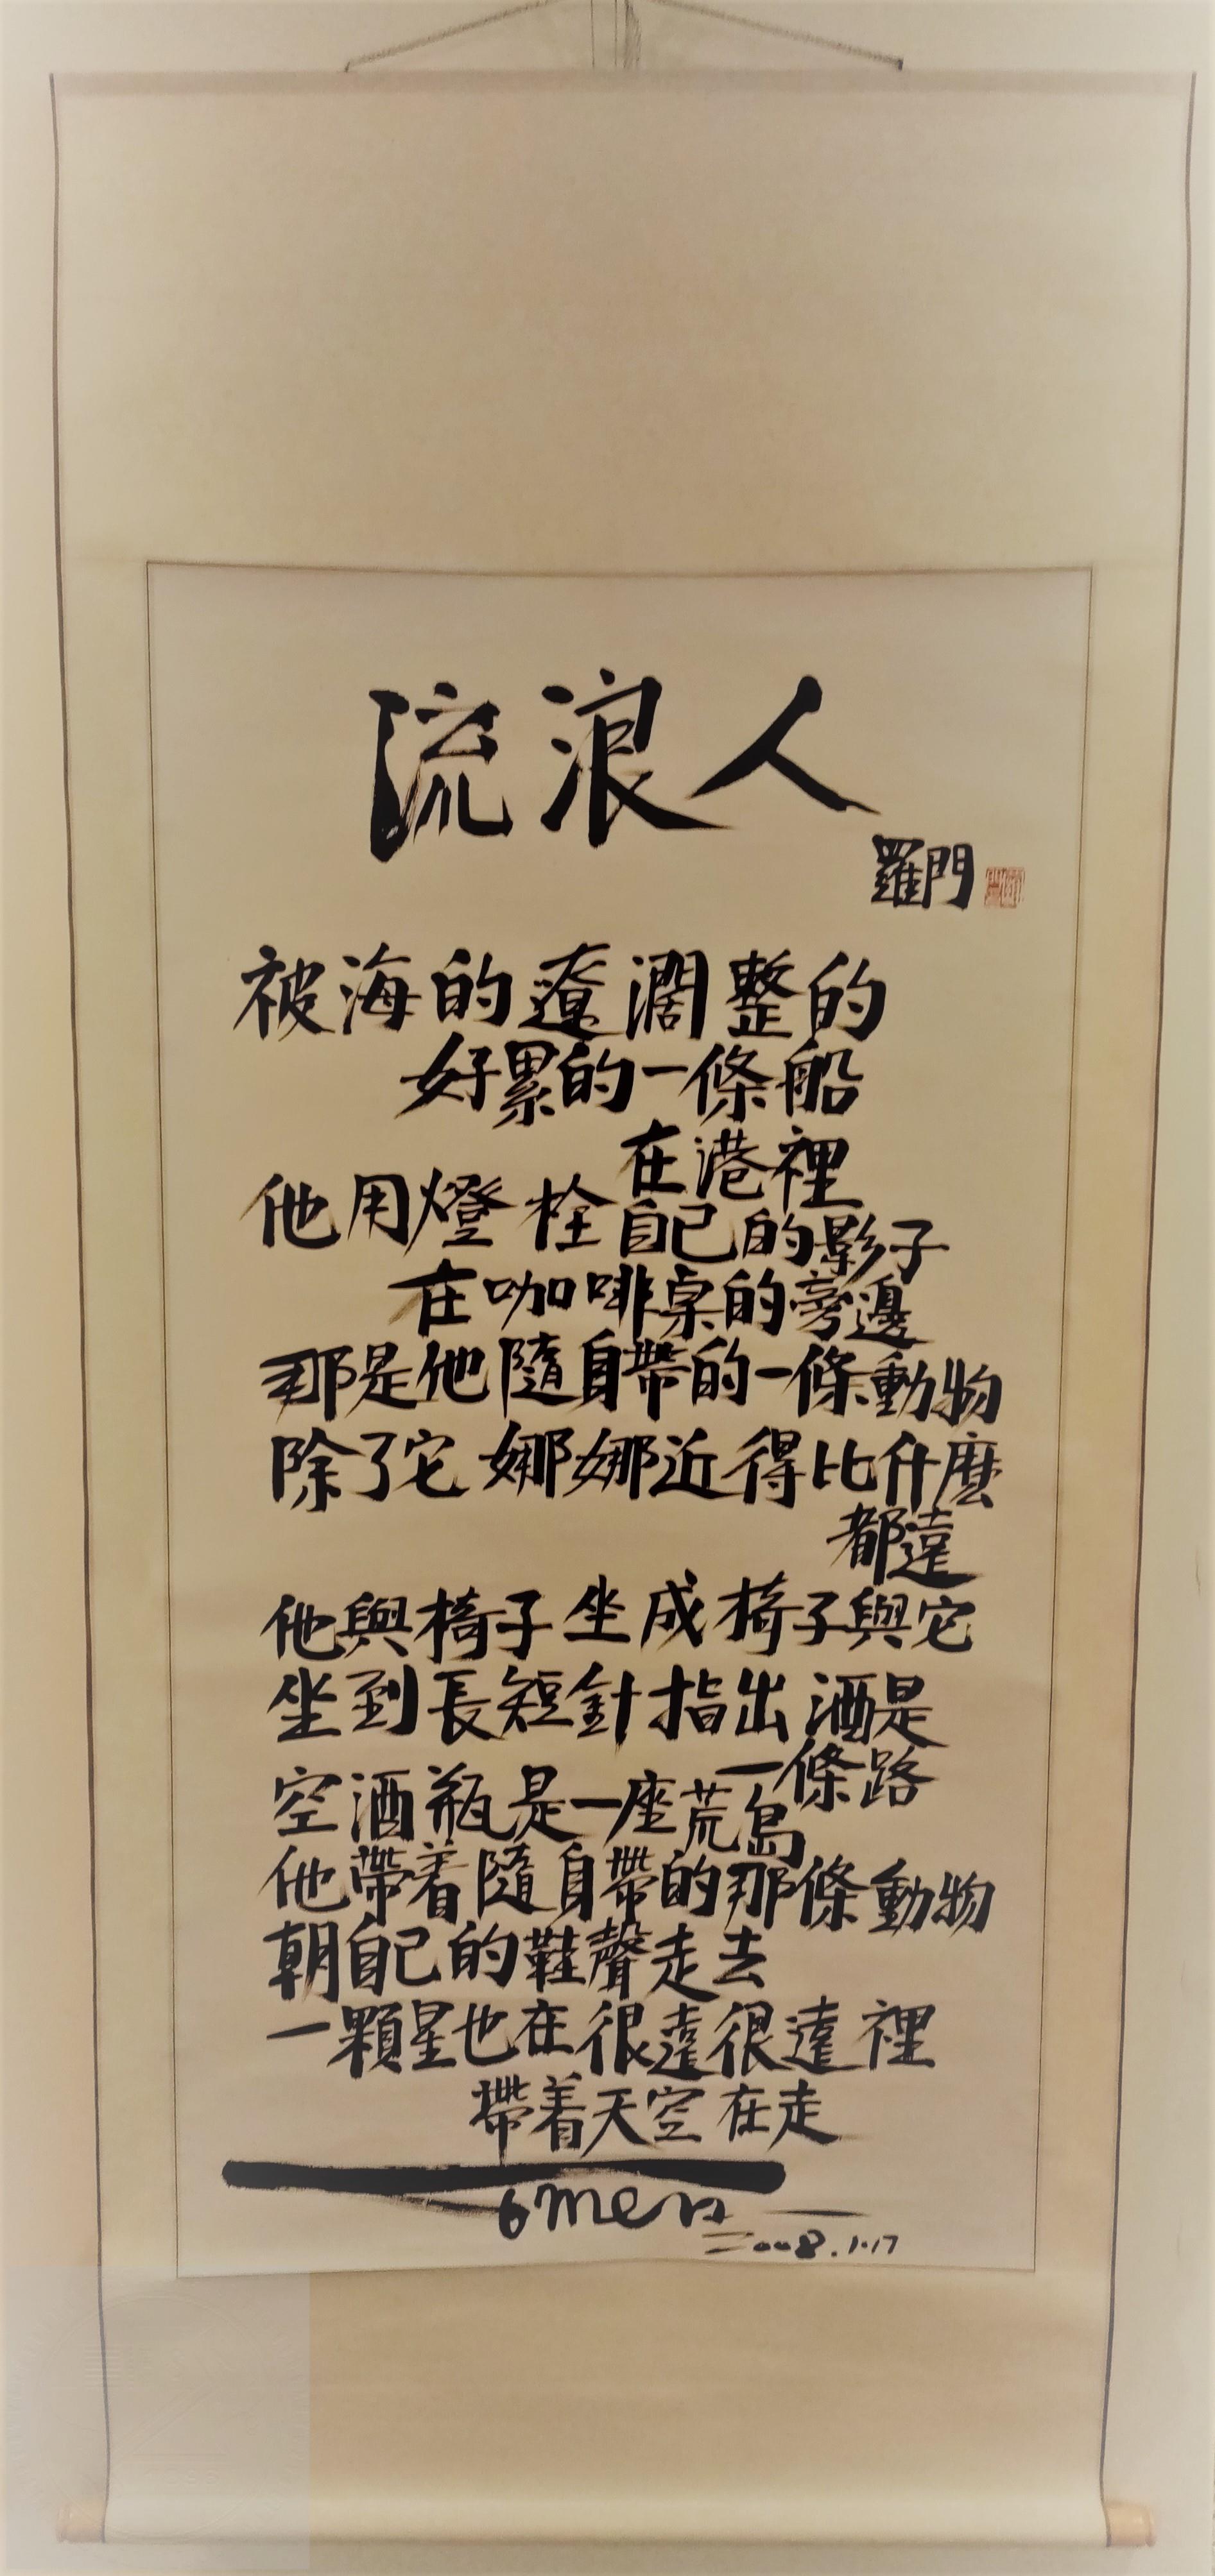 流浪人
羅門
被海的遼濶整的
好累的一條船
在港裡
他用燈栓自己的影子
在咖啡桌的旁邊
那是他隨身帶的一條動物
除了它 娜娜近得比什麼
都遠
他與椅子坐成椅子與它
坐到長短針指出酒是
一條路
空酒瓶是一座荒島
他帶着隨身帶的那條動物
朝自己的鞋聲走去
一顆星也在很遠很遠裡
帶着天空在走
2008.1.17